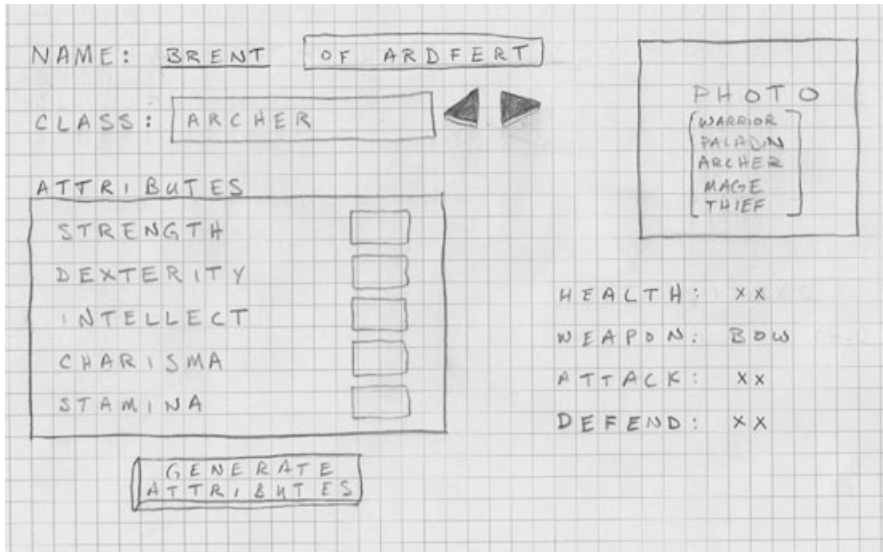 NAME: BRENT OF ARDFERT
CLASS: ARCHER
ATTRIBUTES
STRENGTH
DEXTERITY
INTELLECT
CHARISMA
STAMINA
GENERATE
ATTRIBUTES
PHOTO
WARRIOR
PALADIN
ARCHER
MAGE
THIEF
HEALTH: XX
WEAPON: BOW
ATTACK: XX
DEFEND: XX